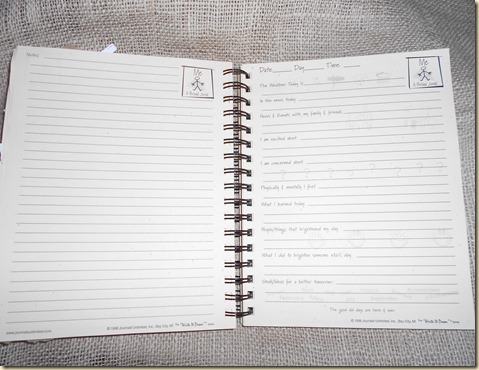 Notes
Me
A Personal Journal
www.journalsunlimited.com
© 1998 Journals Unlimited, Inc. Bay City, MI The "Write It Down!"™ Series
Date Day Time
Me
A Personal Journal
The Weather Today is
In the news today
News & Events with my family & friends
I am excited about
I am concerned about
? ? ? ? ? ? ?
Physically & mentally I feel
What I learned today
People/things that brightened my day
What I did to brighten someone else's day
Goals/Ideas for a better tomorrow
"The good old days are here & now"
© 1998 Journals Unlimited, Inc. Bay City, MI The "Write It Down!"™ Series